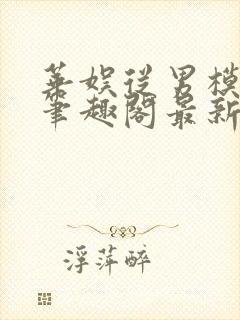 华娱从男模
笔趣阁最新
浮萍醉